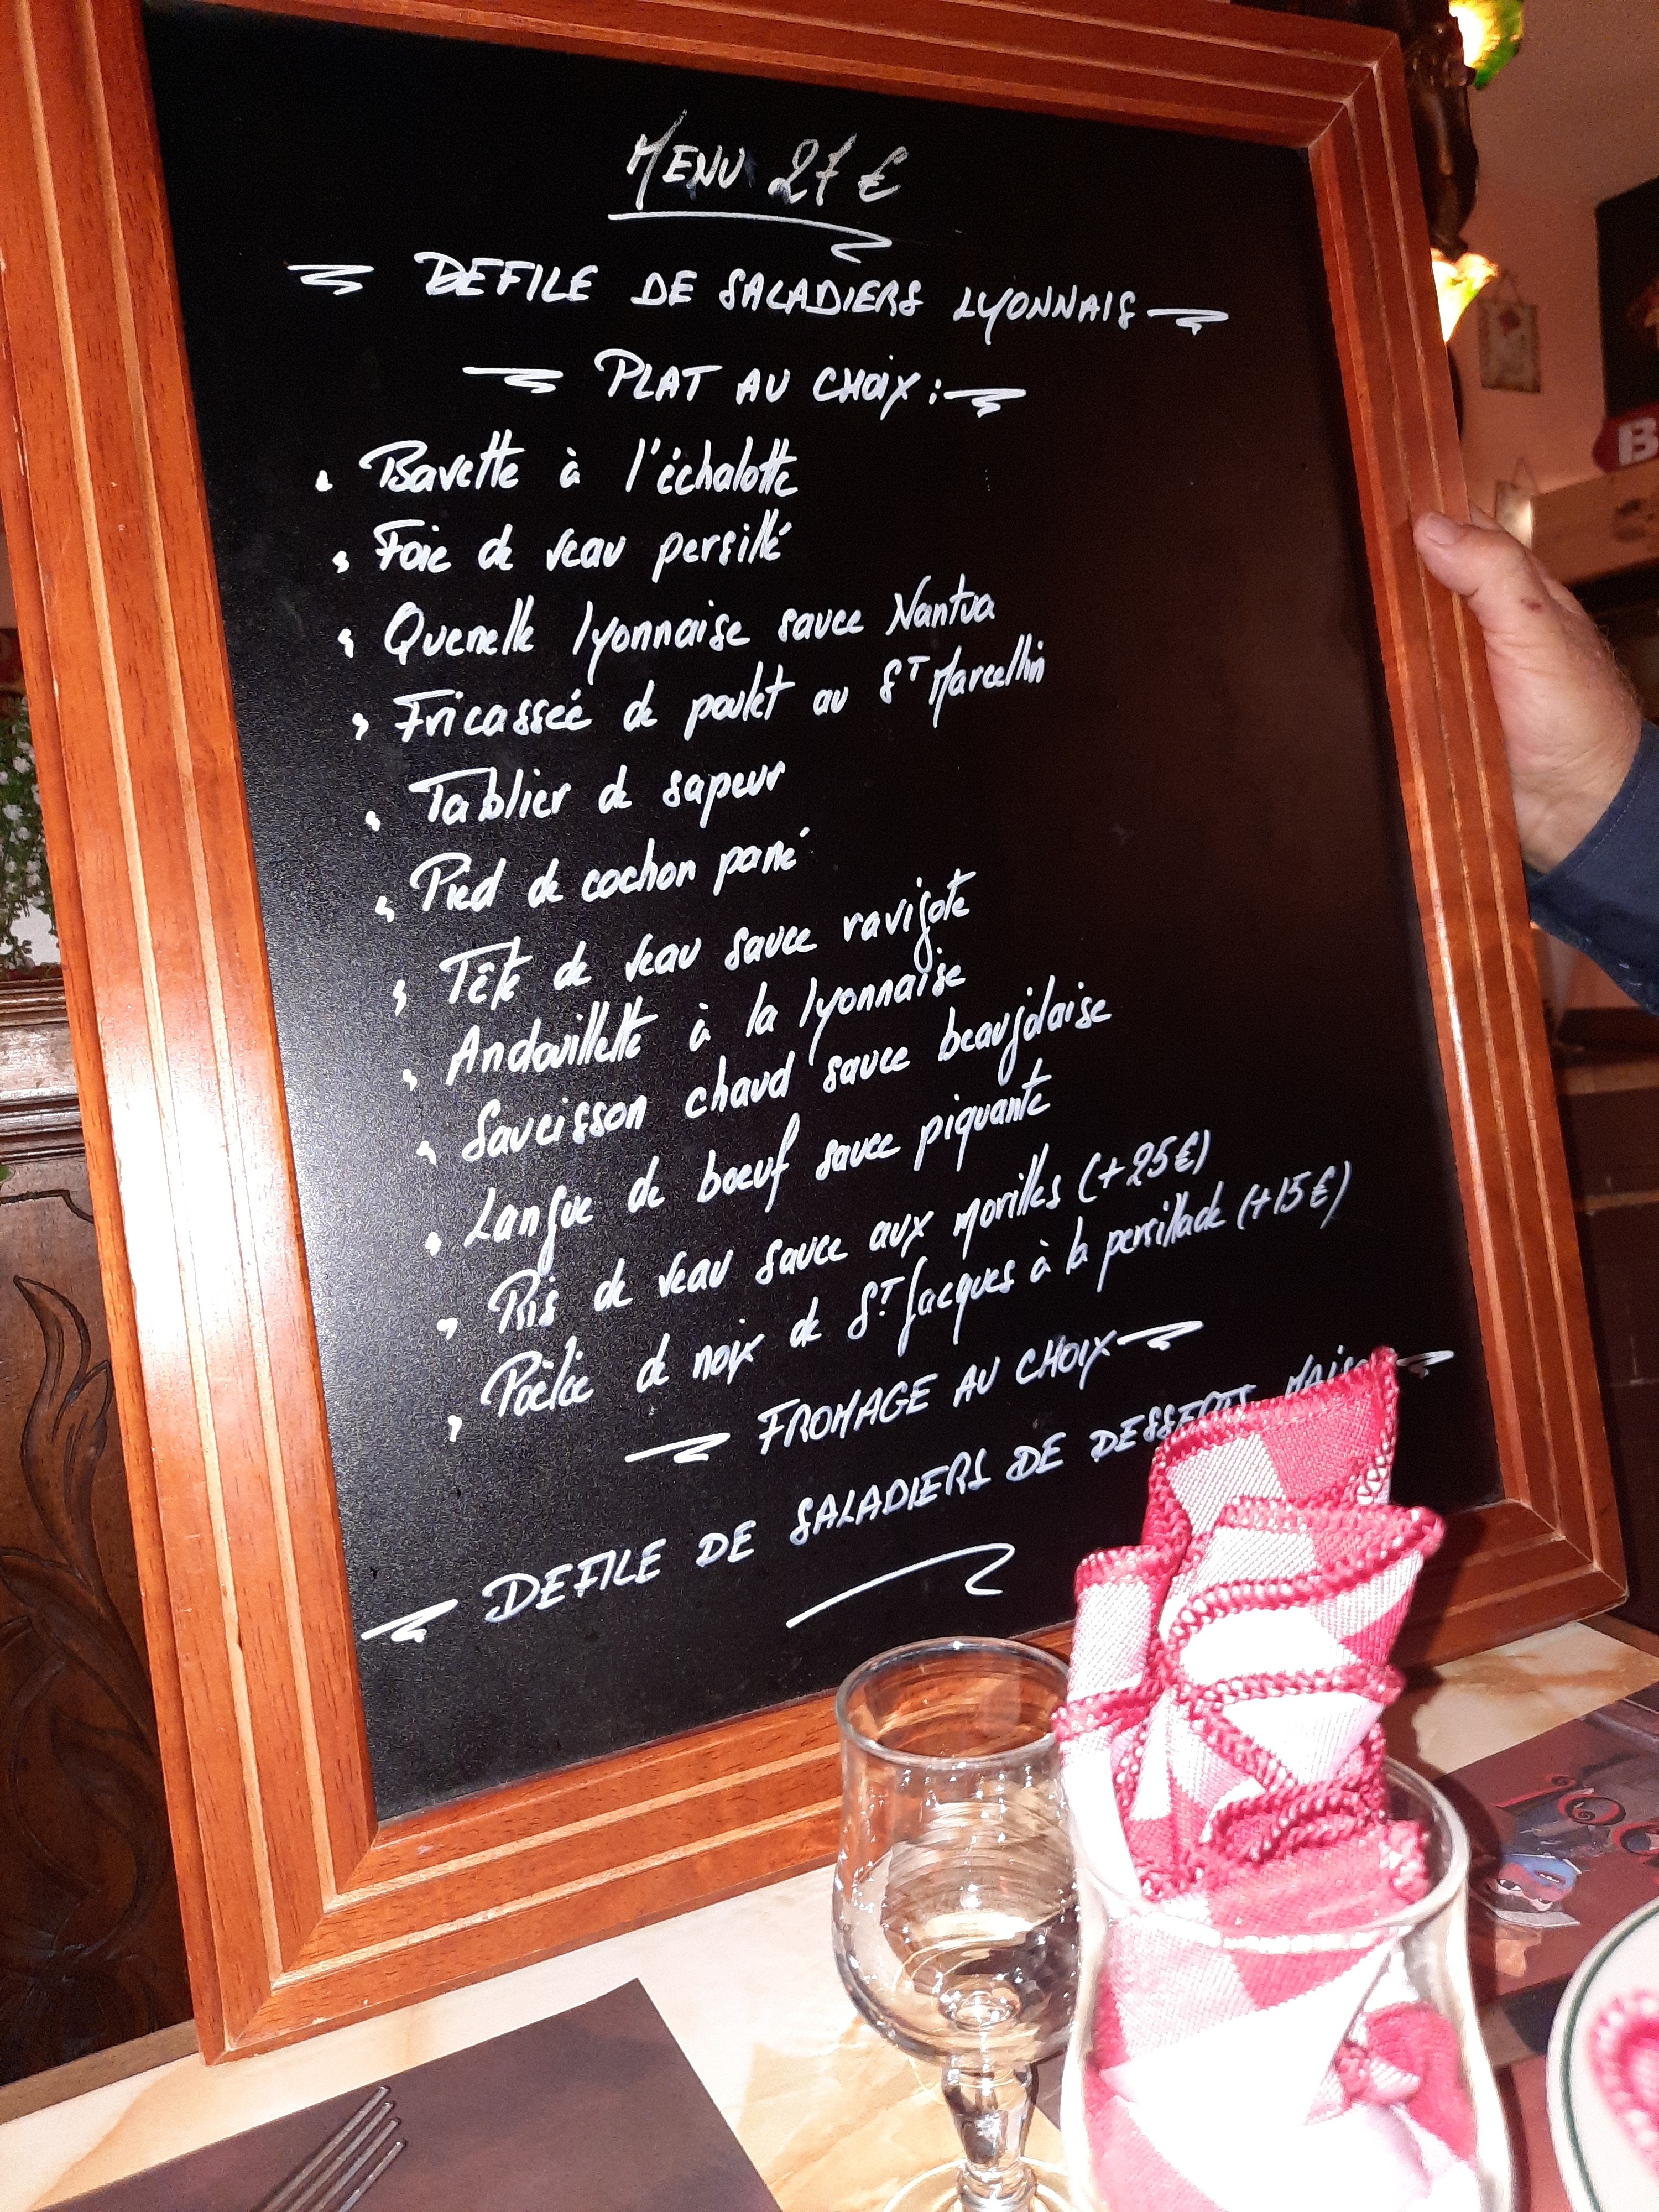 MENU 27 €
DEFILE DE SALADIERS LYONNAIS
PLAT AU CHOIX :
Bavette à l'échalotte
Foie de veau persillé
Quenelle lyonnaise sauce Nantua
Fricassée de poulet au ST Marcellin
Tablier de sapeur
Pied de cochon pané
Tête de veau sauce ravigote
Andouillette à la lyonnaise
Saucisson chaud sauce beaujolaise
Langue de boeuf sauce piquante
Ris de veau sauce aux morilles (+25€)
Poêlée de noix de ST Jacques à la persillade (+15€)
FROMAGE AU CHOIX
DEFILE DE SALADIERS DE DESSERTS
B